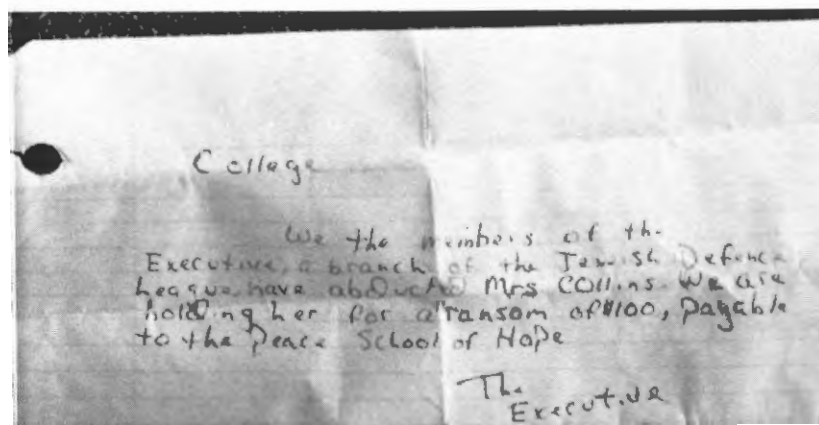 College
We the members of the
Executive, a branch of the Jewish Defence
League, have abducted Mrs Collins. We are
holding her for a ransom of $100, payable
to the Peace School of Hope
The
Executive